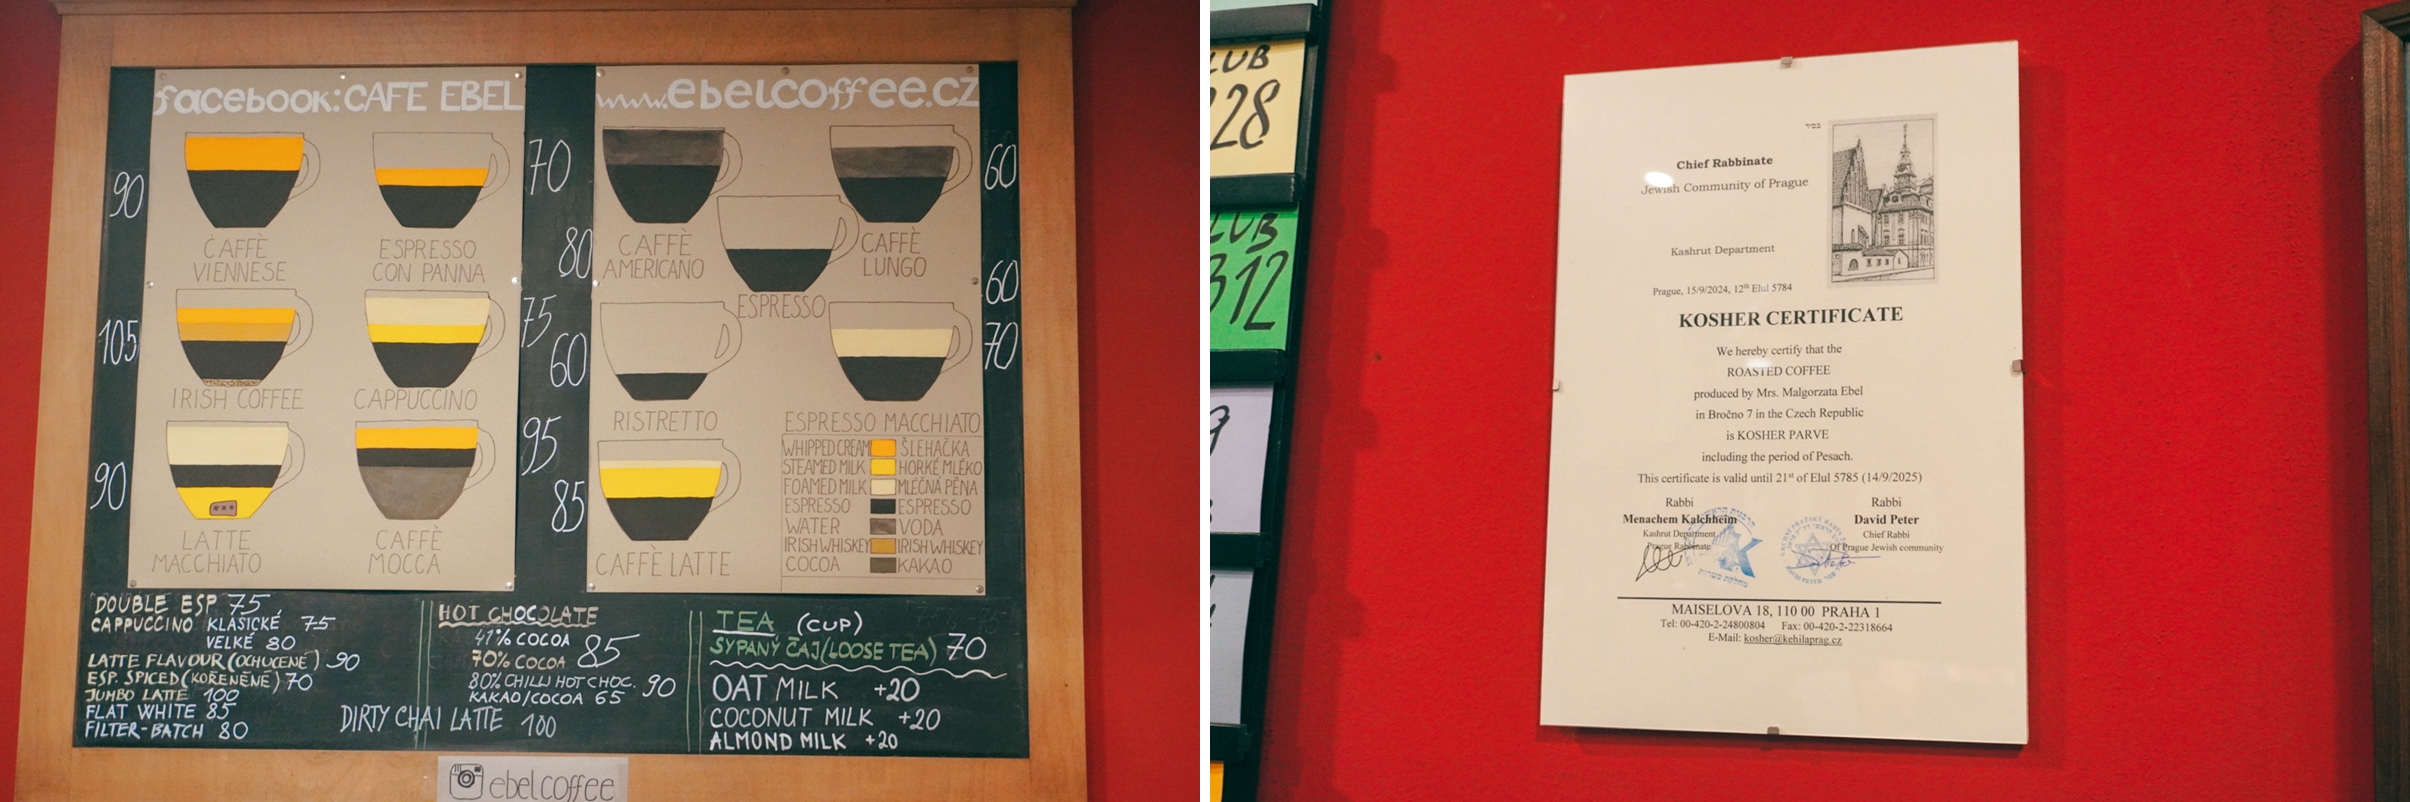 facebook: CAFE EBEL
90
CAFFÈ
VIENNESE
70
ESPRESSO
CON PANNA
105
IRISH COFFEE
75
CAPPUCCINO
90
LATTE
MACCHIATO
95
CAFFÈ
MOCCA
www.ebelcoffee.cz
80
CAFFÈ
AMERICANO
60
CAFFÈ
LUNGO
60
ESPRESSO
60
RISTRETTO
70
ESPRESSO MACCHIATO
85
CAFFÈ LATTE
WHIPPED CREAM ŠLEHAČKA
STEAMED MILK HORKÉ MLÉKO
FOAMED MILK MLÉČNÁ PĚNA
ESPRESSO ESPRESSO
WATER VODA
IRISH WHISKEY IRISH WHISKEY
COCOA KAKAO
DOUBLE ESP. 75
CAPPUCCINO KLASICKÉ 75
VELKÉ 80
LATTE FLAVOUR (OCHUCENÉ) 90
ESP. SPICED (KOŘENĚNÉ) 70
JUMBO LATTE 100
FLAT WHITE 85
FILTER-BATCH 80
HOT CHOCOLATE
41% COCOA 85
70% COCOA
80% CHILLI HOT CHOC. 90
KAKAO/COCOA 65
DIRTY CHAI LATTE 100
TEA (CUP)
SYPANÝ ČAJ (LOOSE TEA) 70
OAT MILK +20
COCONUT MILK +20
ALMOND MILK +20
ebelcoffee
LUB
28
LUB
312
9
בס"ד
Chief Rabbinate
Jewish Community of Prague
Kashrut Department
Prague, 15/9/2024, 12th Elul 5784
KOSHER CERTIFICATE
We hereby certify that the
ROASTED COFFEE
produced by Mrs. Malgorzata Ebel
in Bročno 7 in the Czech Republic
is KOSHER PARVE
including the period of Pesach.
This certificate is valid until 21st of Elul 5785 (14/9/2025)
Rabbi
Menachem Kalchheim
Kashrut Department
Prague Rabbinate
Rabbi
David Peter
Chief Rabbi
Of Prague Jewish community
MAISELOVA 18, 110 00 PRAHA 1
Tel: 00-420-2-24800804 Fax: 00-420-2-22318664
E-Mail: kosher@kehilaprag.cz